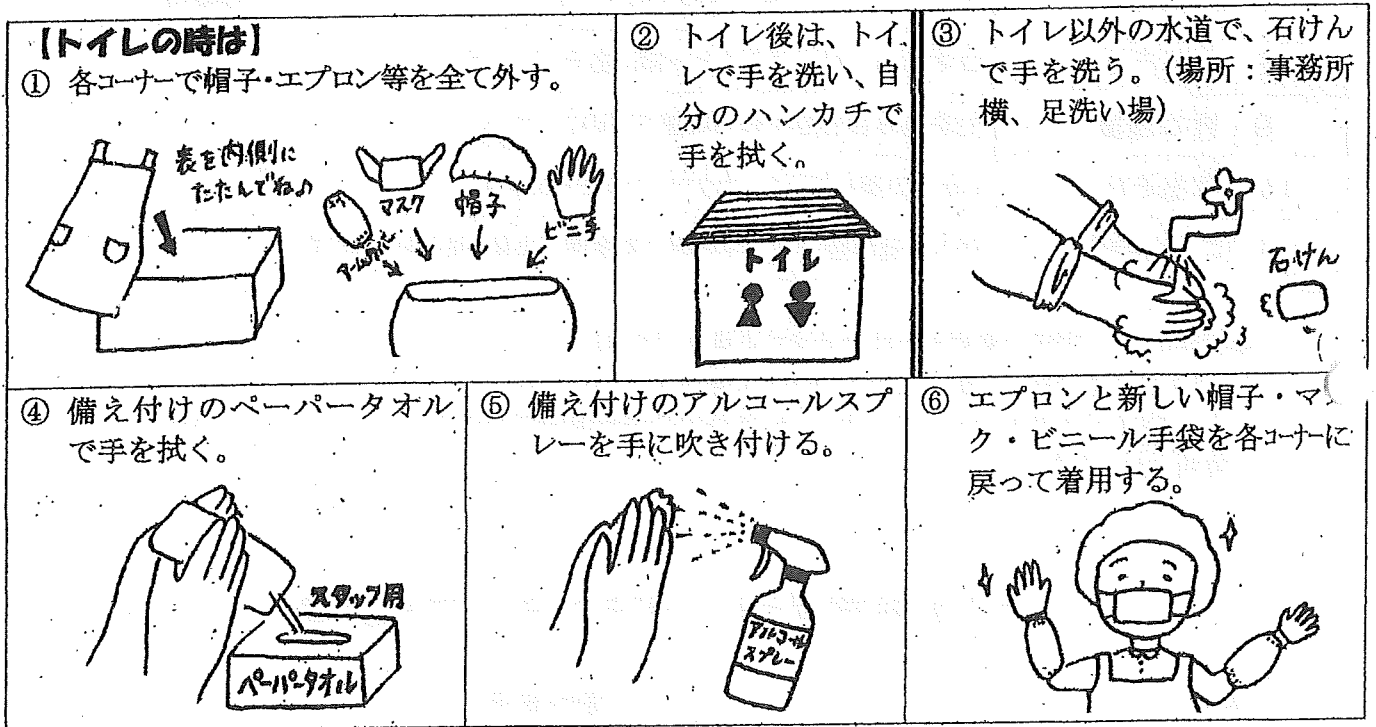 【トイレの時は】
① 各コーナーで帽子・エプロン等を全て外す。
表を内側に
たたんでね♪
マスク
帽子
ビニ手
アームカバー
② トイレ後は、トイ
レで手を洗い、自
分のハンカチで
手を拭く。
トイレ
③ トイレ以外の水道で、石けん
で手を洗う。(場所:事務所
横、足洗い場)
石けん
④ 備え付けのペーパータオル
で手を拭く。
スタッフ用
ペーパータオル
⑤ 備え付けのアルコールスプ
レーを手に吹き付ける。
アルコール
スプレー
⑥ エプロンと新しい帽子・マ
ク・ビニール手袋を各コーナーに
戻って着用する。